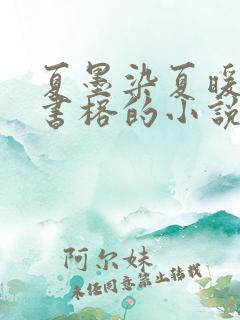 夏墨染夏暖
书格的小说
阿尔妹
未经同意禁止转载